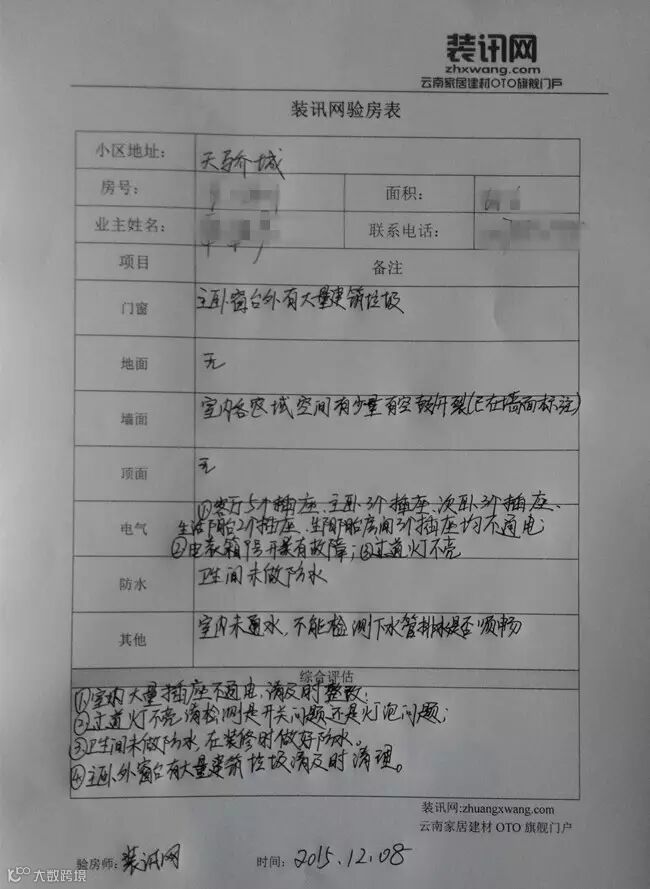 装讯网
zhxwang.com
云南家居建材OTO旗舰门户
装讯网验房表
小区地址: 天骄城
房号: 面积:
业主姓名: 联系电话:
项目 备注
门窗 主卧窗台外有大量建筑垃圾
地面 无
墙面 室内各区域空间有少量有空鼓开裂(已在墙面标注)
顶面 无
①客厅5个插座、主卧3个插座、次卧3个插座、
电气 生活阳台2个插座、生活阳台房间3个插座均不通电;
②电表箱1号开关有故障;③过道灯不亮
防水 卫生间未做防水
其他 室内未通水,不能检测下水管排水是否顺畅
综合评估
①室内大量插座不通电,请及时整改;
②过道灯不亮请检测是开关问题还是灯泡问题;
③卫生间未做防水,在装修时做好防水。
④主卧外窗台有大量建筑垃圾请及时清理。
装讯网:zhuangxwang.com
云南家居建材 OTO 旗舰门户
验房师: 装讯网 时间: 2015.12.08
大数跨境